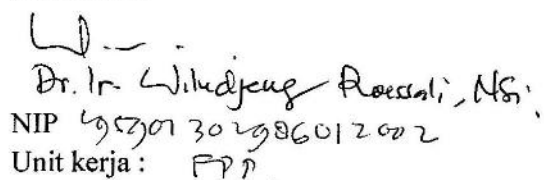 Dr. Ir. Wiludjeng Roessali, MSi.
NIP 195901301986012002
Unit kerja : FPP